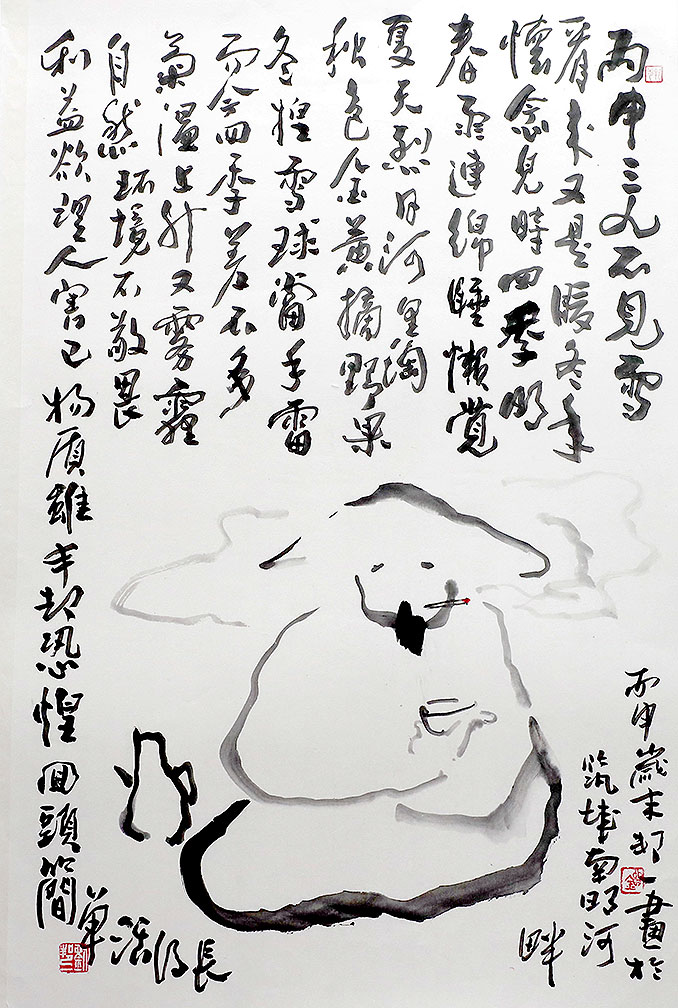 丙申三九不見雪
看来又是暖冬年
懷念兒時四季明
春雨連綿睡懒覺
夏天烈日河里淘
秋色金黄摘野果
冬捏雪球當手雷
而今四季差不多
氣溫上升又雾霾
自然环境不敬畏
利益欲望人害己物质雄丰却恐惶回頭簡
单活得長
丙申歲末却一畫於
筑城南明河
畔